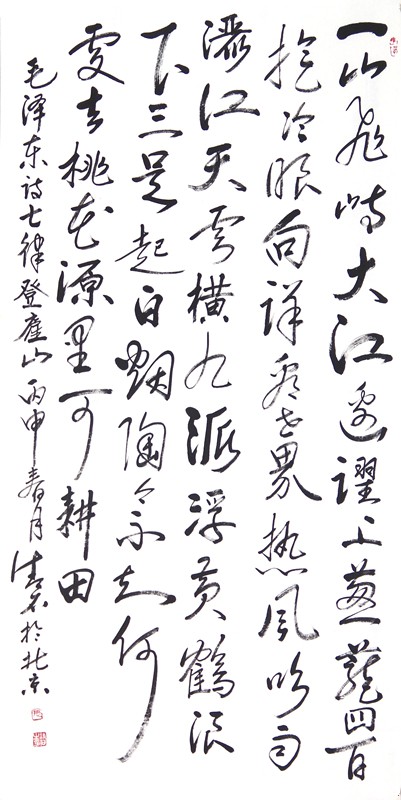 一山飛峙大江邊躍上葱蘢四百
旋冷眼向洋看世界热風吹雨
灑江天雲横九派浮黄鶴浪
下三吴起白烟陶令不知何
處去桃花源里可耕田
毛泽东诗七律登庐山丙申春月於北京